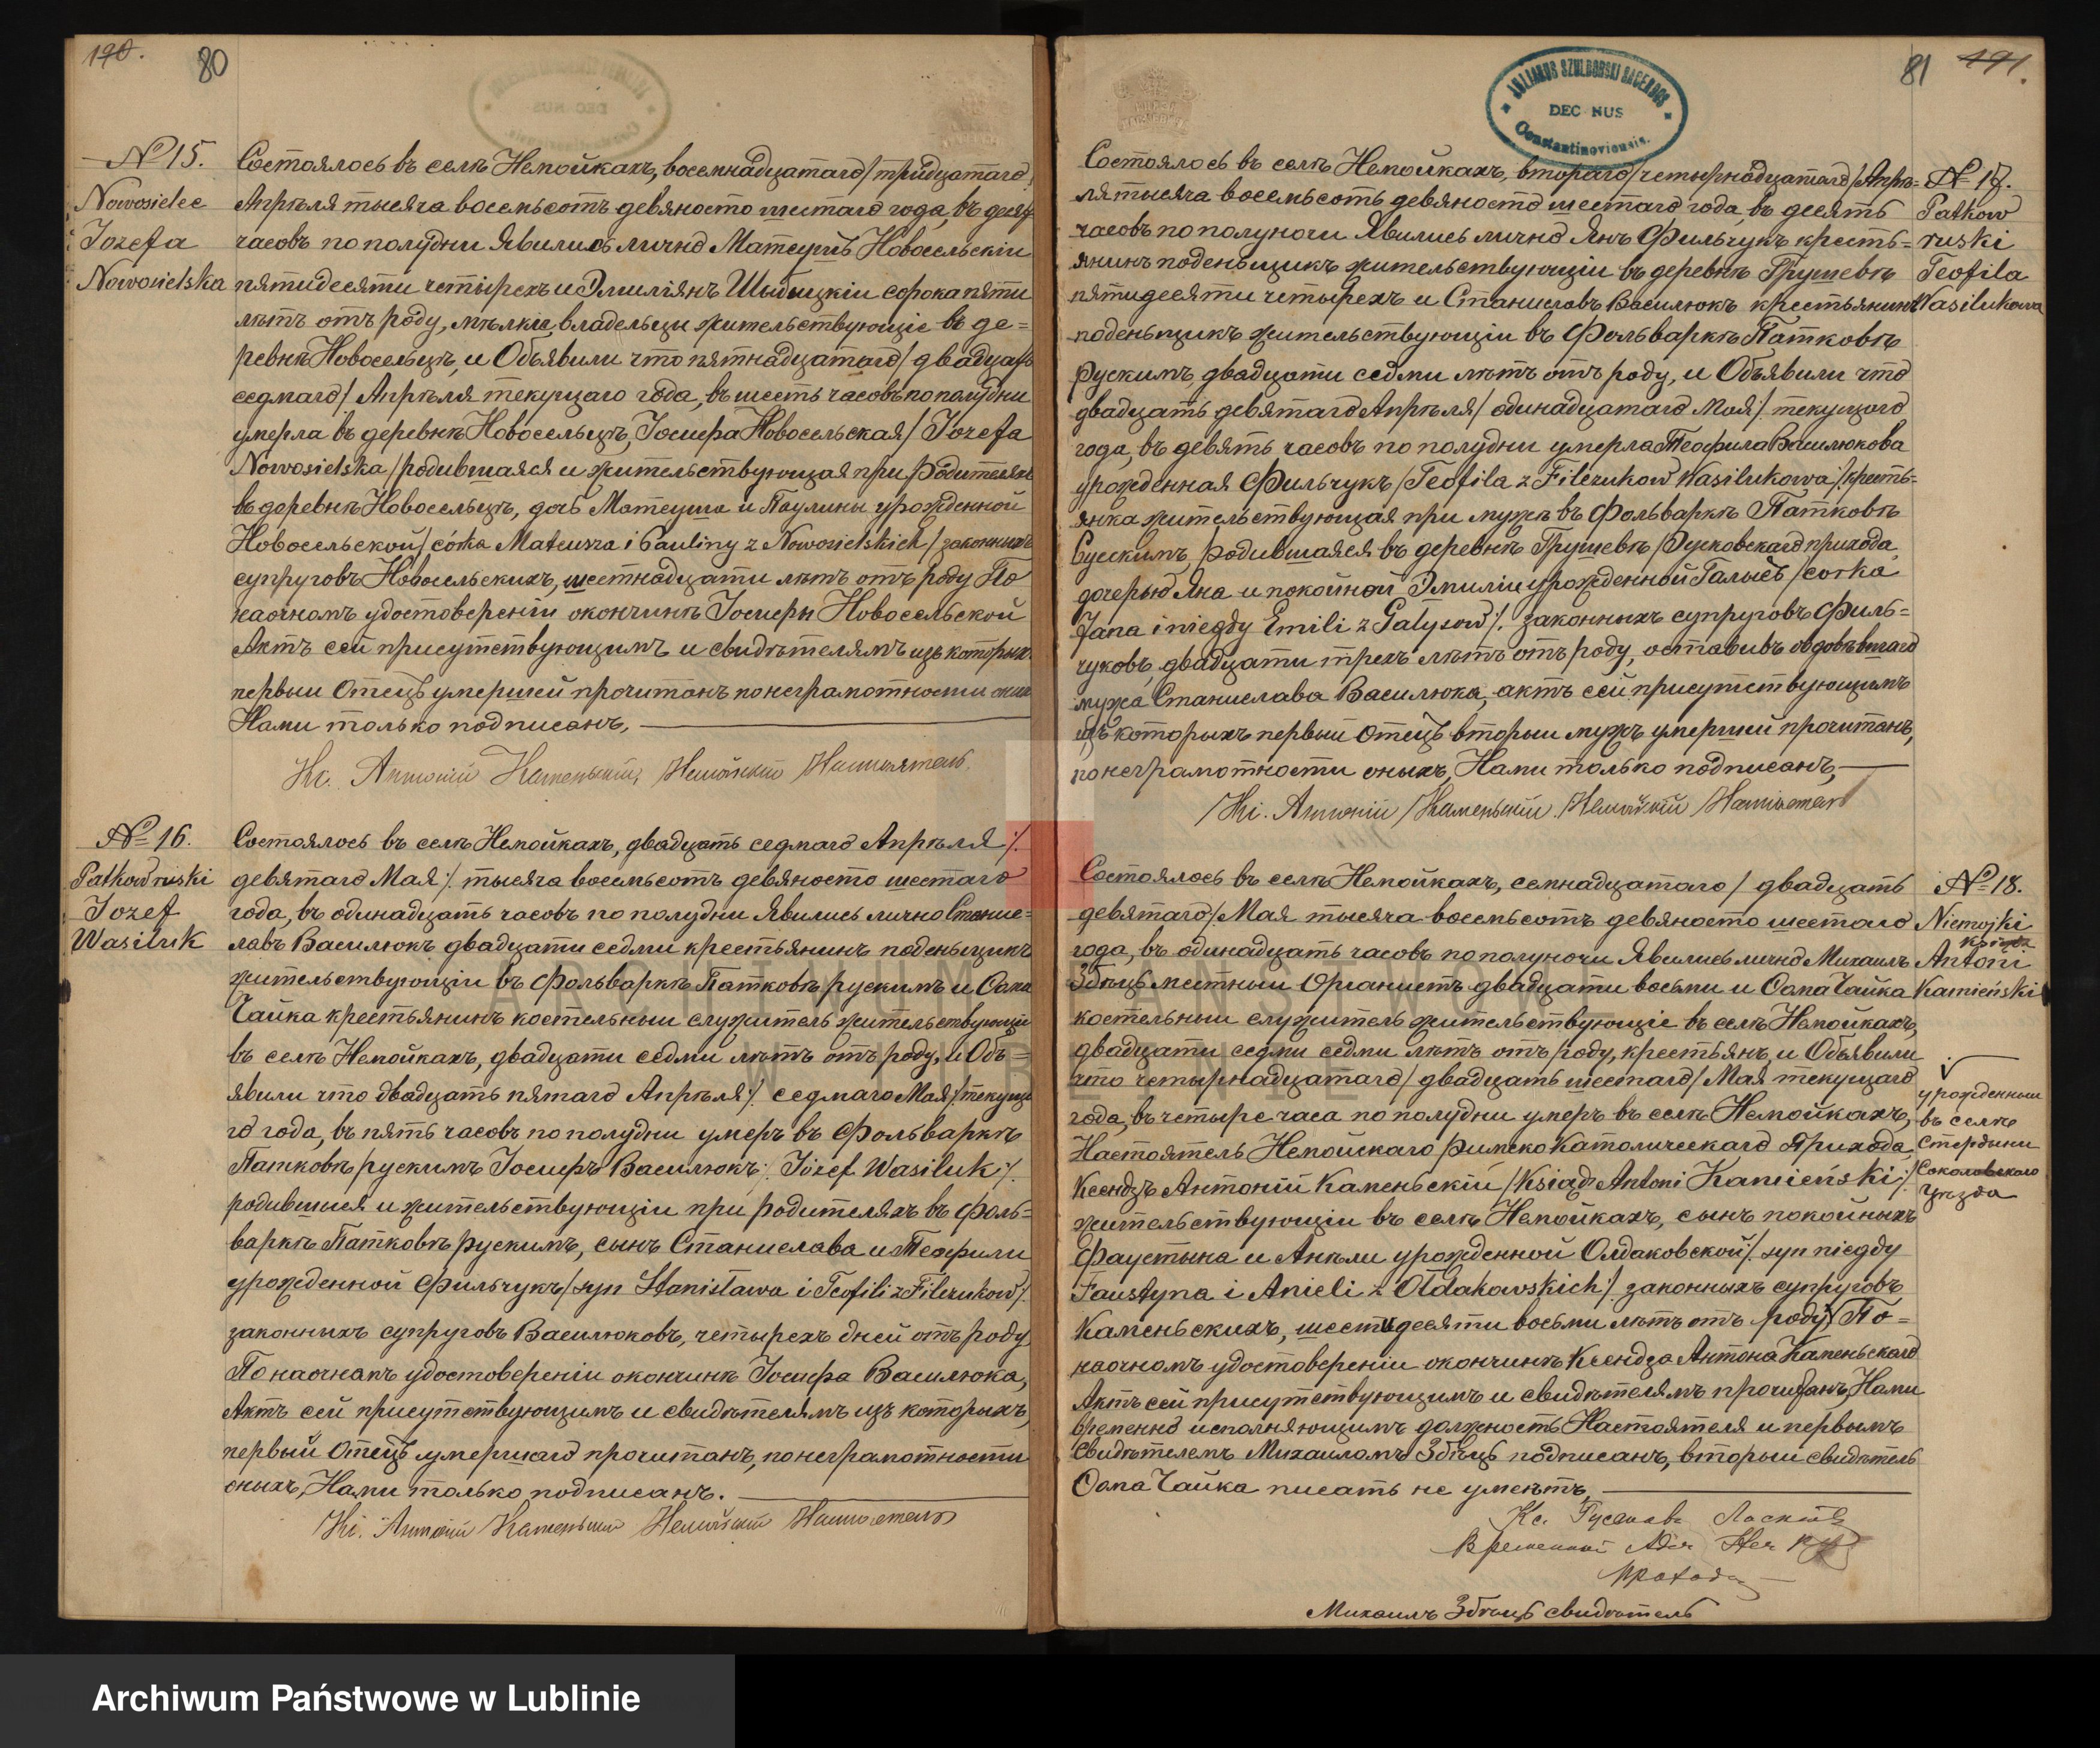 190.
80
№ 15.
Nowosielec
Jozefa
Nowosielska
Состоялось въ селѣ Немойкахъ, восемнадцатаго/тридцатаго/
Апрѣля тысяча восемьсотъ девяносто шестаго года, въ десять
часовъ по полудни Явились лично Матеушъ Новосельскіи
пятидесяти четырехъ и Эмиліянъ Шыбицкіи сорока пяти
лѣтъ отъ роду, мѣлкіе владельцы жительствующіе въ де=
ревнѣ Новосельцѣ, и Объявили что пятнадцатаго/двадцать
седмаго/ Апрѣля текущаго года, въ шесть часовъ по полудни
умерла въ деревнѣ Новосельцѣ, Іосифа Новосельская/ Jozefa
Nowosielska/родившаяся и жительствующая при родителяхъ
въ деревнѣ Новосельцѣ, дочь Матеуша и Паулины урожденной
Новосельской/ córka Mateusza i Pauliny z Nowosielskich/законныхъ
супруговъ Новосельскихъ, шестнадцати лѣтъ отъ роду По
наочномъ удостовереніи окончинѣ Іосифы Новосельской
Актъ сей присутствующимъ и свидѣтелямъ изъ которыхъ
первыи Отецъ умершей прочитанъ по неграмотности оныхъ
Нами только подписанъ,
Кс. Антоній Каменьскій Немойскій Настоятель
№ 16.
Patków ruski
Jozef
Wasiluk
Состоялось въ селѣ Немойкахъ, двадцать седмаго Апрѣля/
девятаго Мая/ тысяча восемьсотъ девяносто шестаго
года, въ одинадцать часовъ по полудни Явились лично Станис=
лавъ Василюкъ двадцати седми крестьянинъ поденьщикъ
жительствующіи въ Фольваркѣ Патковѣ рускимъ и Осма
Чайка крестьянинъ костельныи служитель жительствующіи
въ селѣ Немойкахъ, двадцати седми лѣтъ отъ роду, и Объ=
явили что двадцать пятаго Апрѣля/ седмаго Мая/ текуща
го года, въ пять часовъ по полудни умеръ въ Фольваркѣ
Патковѣ рускимъ Іосифъ Василюкъ/ Józef Wasiluk/
родившися и жительствующіи при родителяхъ въ Фоль=
варкѣ Патковѣ рускимъ, сынъ Станислава и Теофили
урожденной Фильчукъ/syn Stanisława i Teofili z Filczuków/
законныхъ супруговъ Василюковъ, четырехъ дней отъ роду
По наочномъ удостовереніи окончинѣ Іосифа Василюка,
Актъ сей присутствующимъ и свидѣтелямъ изъ которыхъ,
первый Отецъ умершаго прочитанъ, по неграмотности
оныхъ, Нами только подписанъ.
Кс. Антоній Каменьскій Немойскій Настоятель
81
191.
JULIANUS SZULBORSKI SACERDOS
DEC NUS
Constantinoviensis.
№ 17.
Patkow
ruski
Teofila
Wasilukowa
Состоялось въ селѣ Немойкахъ, втораго/четырнадцатаго/Апрѣ=
ля тысяча восемьсотъ девяносто шестаго года, въ десять
часовъ по полуночи Явились лично Янъ Фильчукъ кресть=
янинъ поденьщикъ жительствующіи въ деревнѣ Грушевѣ
пятидесяти четырехъ и Станиславъ Василюкъ крестьянинъ
поденьщикъ жительствующіи въ Фольваркѣ Патковѣ
рускимъ, двадцати седми лѣтъ отъ роду, и Объявили что
двадцать девятаго Апрѣля/ одинадцатаго Мая/ текущаго
года, въ девять часовъ по полудни умерла Теофила Василюкова
урожденная Фильчукъ/Teofila z Filczuków Wasilukowa/кресть=
янка жительствующая при мужѣ въ Фольваркѣ Патковѣ
Рускимъ, родившаяся въ деревнѣ Грушевѣ/Русковскаго прихода,
дочерью Яна и покойной Эмиліи урожденной Галысъ/corka
Jana i niegdy Emili z Galysow/ законныхъ супруговъ Филь=
чуковъ, двадцати трехъ лѣтъ отъ роду, оставивъ овдовѣвшаго
мужа Станислава Василюка, актъ сей присутствующимъ
изъ которыхъ первыи Отецъ вторыи мужъ умершей прочитанъ,
по неграмотности оныхъ, Нами только подписанъ,
Кс. Антоній Каменьскій Немойскій Настоятель
№ 18.
Niemojki
Antoni
Kamieński
Состоялось въ селѣ Немойкахъ, семнадцатаго/ двадцать
девятаго/ Мая тысяча восемьсотъ девяносто шестаго
года, въ одинадцать часовъ по полуночи Явились лично Михаилъ
Збѣць местныи Органистъ двадцати восьми и Осма Чайка
костельныи служитель жительствующіе въ селѣ Немойкахъ,
двадцати седми седми лѣтъ отъ роду, крестьянъ, и Объявили
что четырнадцатаго/ двадцать шестаго/ Мая текущаго
года, въ четыре часа по полудни умеръ въ селѣ Немойкахъ,
Настоятель Немойскаго римско Католическаго Прихода
Ксендзъ Антоній Каменьскій/Ksiądz Antoni Kamieński/
жительствующіи въ селѣ Немойкахъ, сынъ покойныхъ
Фаустына и Анѣли урожденной Олдаковской/ syn niegdy
Faustyna i Anieli z Ołdakowskich/ законныхъ супруговъ
Каменьскихъ, шестидесяти восьми лѣтъ отъ роду По=
наочномъ удостовереніи окончинѣ Ксендза Антона Каменьскаго
Актъ сей присутствующимъ и свидѣтелямъ прочитанъ, Нами
временно исполняющимъ должность Настоятеля и первымъ
Свидѣтелемъ Михаиломъ Збѣць подписанъ, вторыи свидѣтель
Осма Чайка писать не умеетъ,
урожденныи
въ селѣ
Стердыни
Соколовскаго
Уѣзда
Временный
Прихода
Михаилъ Збѣць свидѣтель
ARCHIWUM PAŃSTWOWE
W LUBLINIE
Archiwum Państwowe w Lublinie